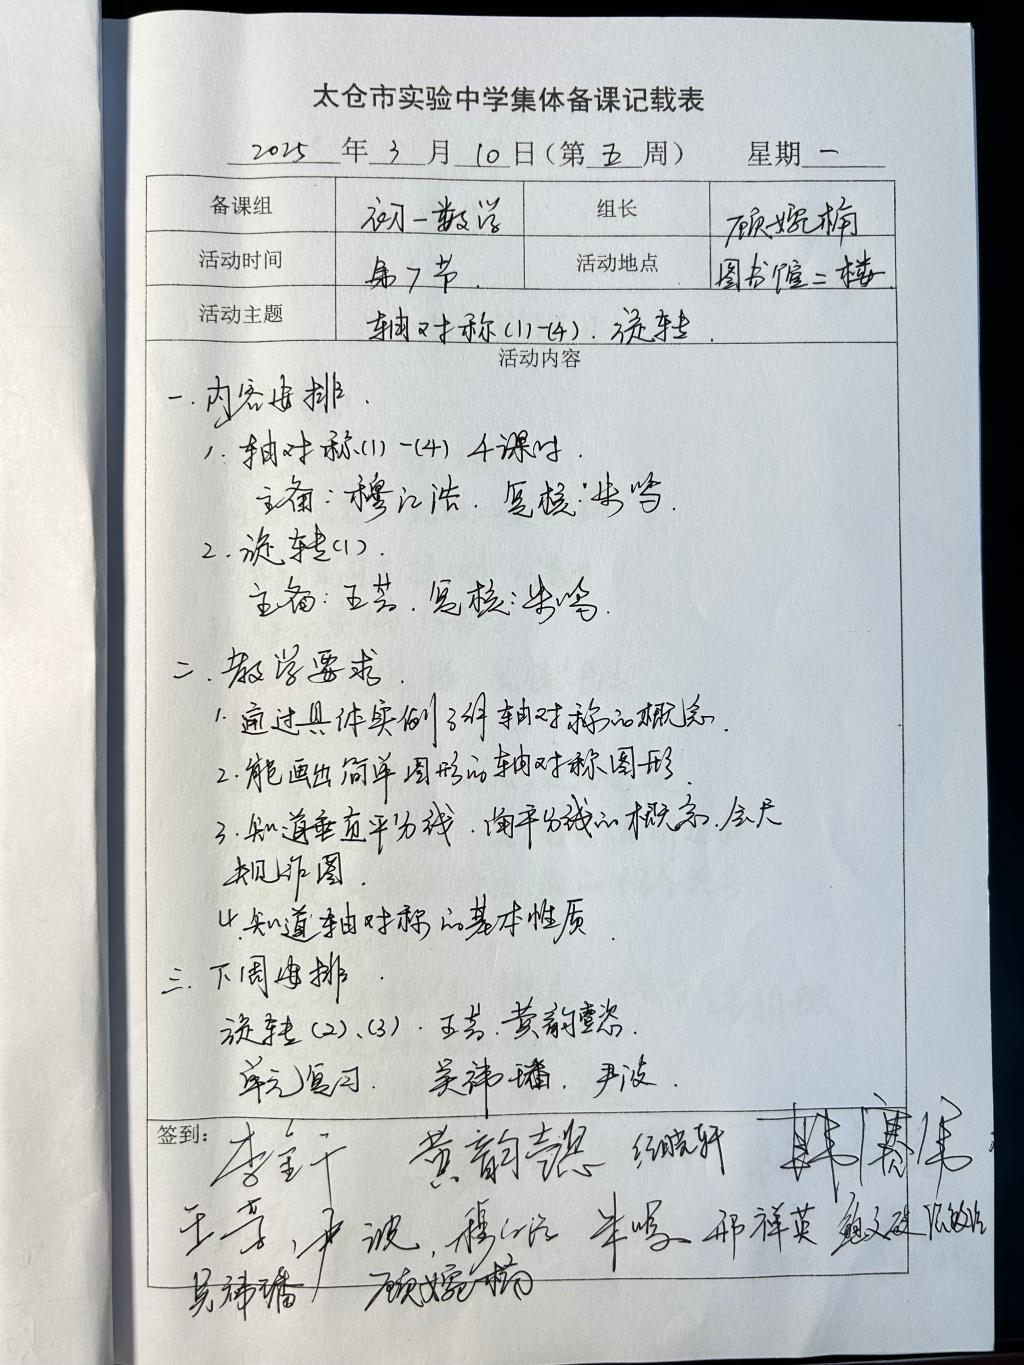 太仓市实验中学集体备课记载表
2025 年 3 月 10 日（第 五 周） 星期 一
备课组 初一数学 组长 顾婉楠
活动时间 第7节. 活动地点 图书馆二楼
活动主题 轴对称(1)-(4). 旋转.
活动内容
一. 内容安排.
1. 轴对称(1)-(4) 4课时.
主备: 穆江浩. 复核: 朱鸣.
2. 旋转(1).
主备: 王 复核: 朱鸣.
二. 教学要求.
1. 通过具体实例了解轴对称的概念.
2. 能画出简单图形的轴对称图形.
3. 知道垂直平分线. 角平分线的概念. 会尺
规作图.
4. 知道轴对称的基本性质.
三. 下周安排.
旋转(2)、(3). 王 黄韵
单元复习. 吴祎璠. 尹波.
签到: 李 黄韵 晓轩 韩
王 尹波, 穆江浩 朱鸣 邢祥英
吴祎璠 顾婉楠